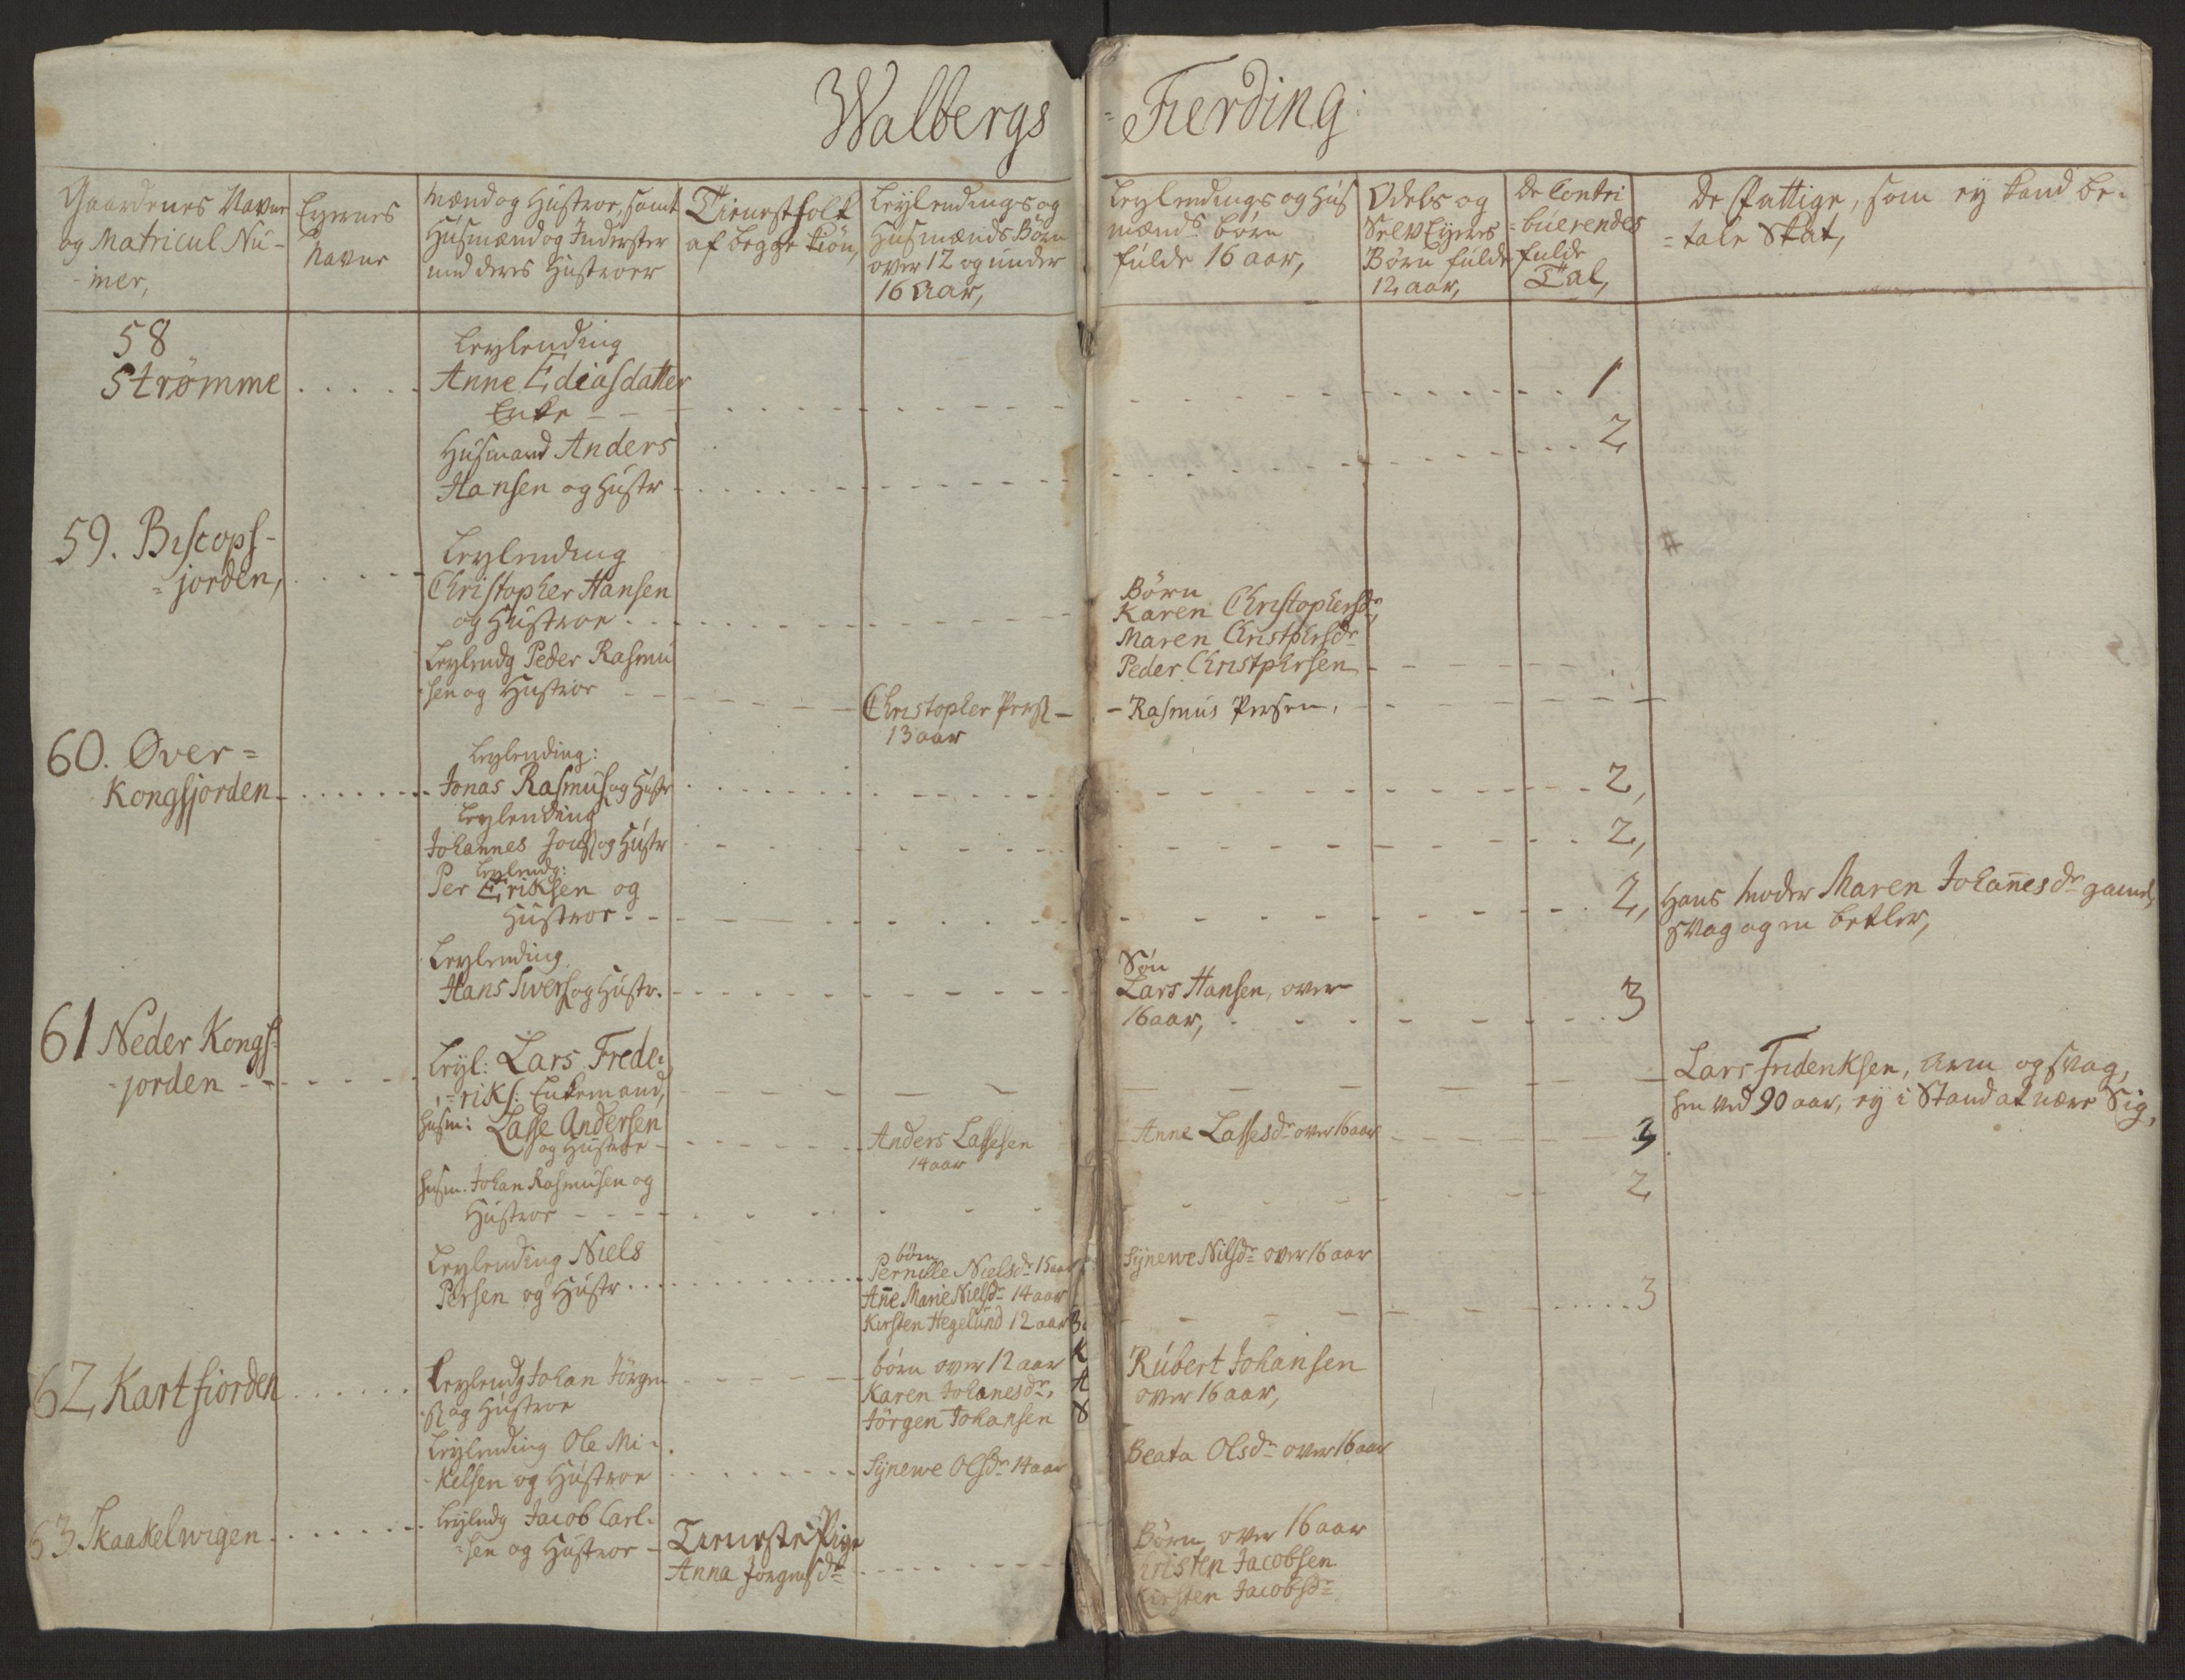 Walbergs = Fierding:
Gaardenes Navne
og Matricul Nu-
-mer,
Eyernes
Navne
Mænd og Hustroe, samt
Huusmænd og Inderster
med deres Hustroer
Tienestfolk
af begge Kiøn,
Leylendings og
Husmænds Børn
over 12 og under
16 Aar,
Leylendings og Hus
mænds børn
fulde 16 aar,
Odels og
SelvEyeres
Børn fulde
12 aar,
De Contri
=buerendes
fulde
Tal,
De Fattige, som ey kand be-
=tale Skat,
58
Strømme
Leylending
Anne Ediasdatter
Enke
1
Husmand Anders
Hansen og Hustr
2
59. Biscops-
=jorden,
Leylending
Christopher Hansen
og Hustroe
Børn
Karen Christophersdr
Maren Christphersdr
Peder Christphersen
Leylendg Peder Rasmu
sen og Hustroe
Christopher Pers
13 aar
- Rasmus Persen,
60. Øver=
Kongsjorden
Leylending:
Jonas Rasmus og Hustr
2,
Leylending
Johannes Jons og Hustr
2,
Leylendg:
Per Eriksen og
Hustroe
2,
Hans moder Maren Johanesdr gamel,
svag og en betler,
Leylending
Hans Ivers og Hustr.
Søn
Lars Hansen, over
16 aar,
3
61 Neder Kongs-
-jorden
Leyl: Lars Frede-
riks: Enkemand,
Lars Frideriksen, Arm og svag,
hen ved 90 aar, ey i Stand at nære Sig,
Husm: Lasse Andersen
og Hustroe
Anders Lassesen
14 aar
Anne Lassesdr over 16 aar
3
Husm. Johan Rasmusen og
Hustroe
2
Leylending Niels
Persen og Hustr
børn
Pernille Nielsdr 15 aar
Ane Marie Nielsdr 14 aar
Kirsten Hegelund 12 aar
Synewe Nilsdr over 16 aar
3
62, Kartfiorden
Leylendg Johan Jörgen
s og Hustroe
børn over 12 aar
Karen Johanesdr,
Jörgen Johansen
Rubert Johansen
over 16 aar,
Leylending Ole Mi-
-kelsen og Hustroe
Synewe Olsdr 14 aar
Beata Olsdr over 16 aar
63 Skaakelwigen
Leylendg Jacob Carl-
=sen og Hustroe
Tieneste Pige
Anna Jorgensdr
Børn over 16 aar
Christen Jacobsen
Kirsten Jacobsdr